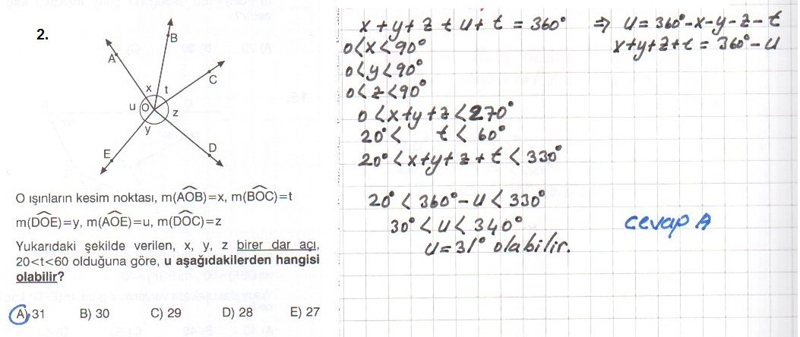 2.
A
B
C
D
E
O
x
t
u
z
y
O ışınların kesim noktası, m(AOB)=x, m(BOC)=t
m(DOE)=y, m(AOE)=u, m(DOC)=z
Yukarıdaki şekilde verilen, x, y, z birer dar açı,
20<t<60 olduğuna göre, u aşağıdakilerden hangisi
olabilir?
A) 31 B) 30 C) 29 D) 28 E) 27
x+y+z+u+t = 360° ⇒ u = 360°-x-y-z-t
0<x<90° x+y+z+t = 360°-u
0<y<90°
0<z<90°
0<x+y+z<270°
20°< t < 60°
20°<x+y+z+t<330°
20°<360°-u<330°
30°<u<340°
u=31° olabilir.
cevap A